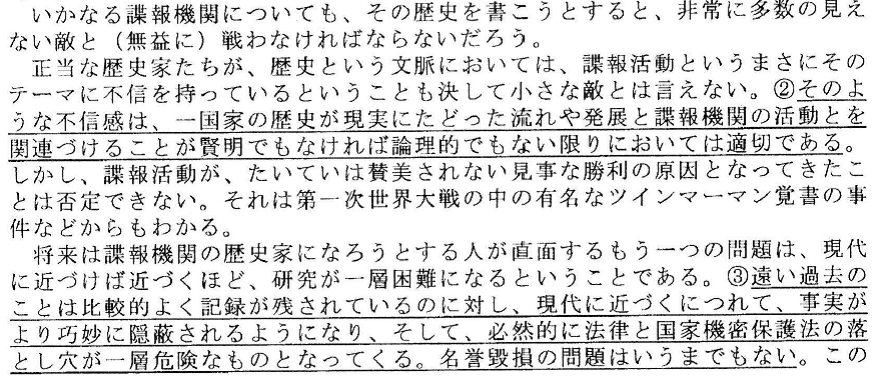 いかなる諜報機関についても、その歴史を書こうとすると、非常に多数の見え
ない敵と（無益に）戦わなければならないだろう。
正当な歴史家たちが、歴史という文脈においては、諜報活動というまさにその
テーマに不信を持っているということも決して小さな敵とは言えない。②そのよ
うな不信感は、一国家の歴史が現実にたどった流れや発展と諜報機関の活動とを
関連づけることが賢明でもなければ論理的でもない限りにおいては適切である。
しかし、諜報活動が、たいていは賛美されない見事な勝利の原因となってきたこ
とは否定できない。それは第一次世界大戦の中の有名なツインマーマン覚書の事
件などからもわかる。
将来は諜報機関の歴史家になろうとする人が直面するもう一つの問題は、現代
に近づけば近づくほど、研究が一層困難になるということである。③遠い過去の
ことは比較的よく記録が残されているのに対し、現代に近づくにつれて、事実が
より巧妙に隠蔽されるようになり、そして、必然的に法律と国家機密保護法の落
とし穴が一層危険なものとなってくる。名誉毀損の問題はいうまでもない。この